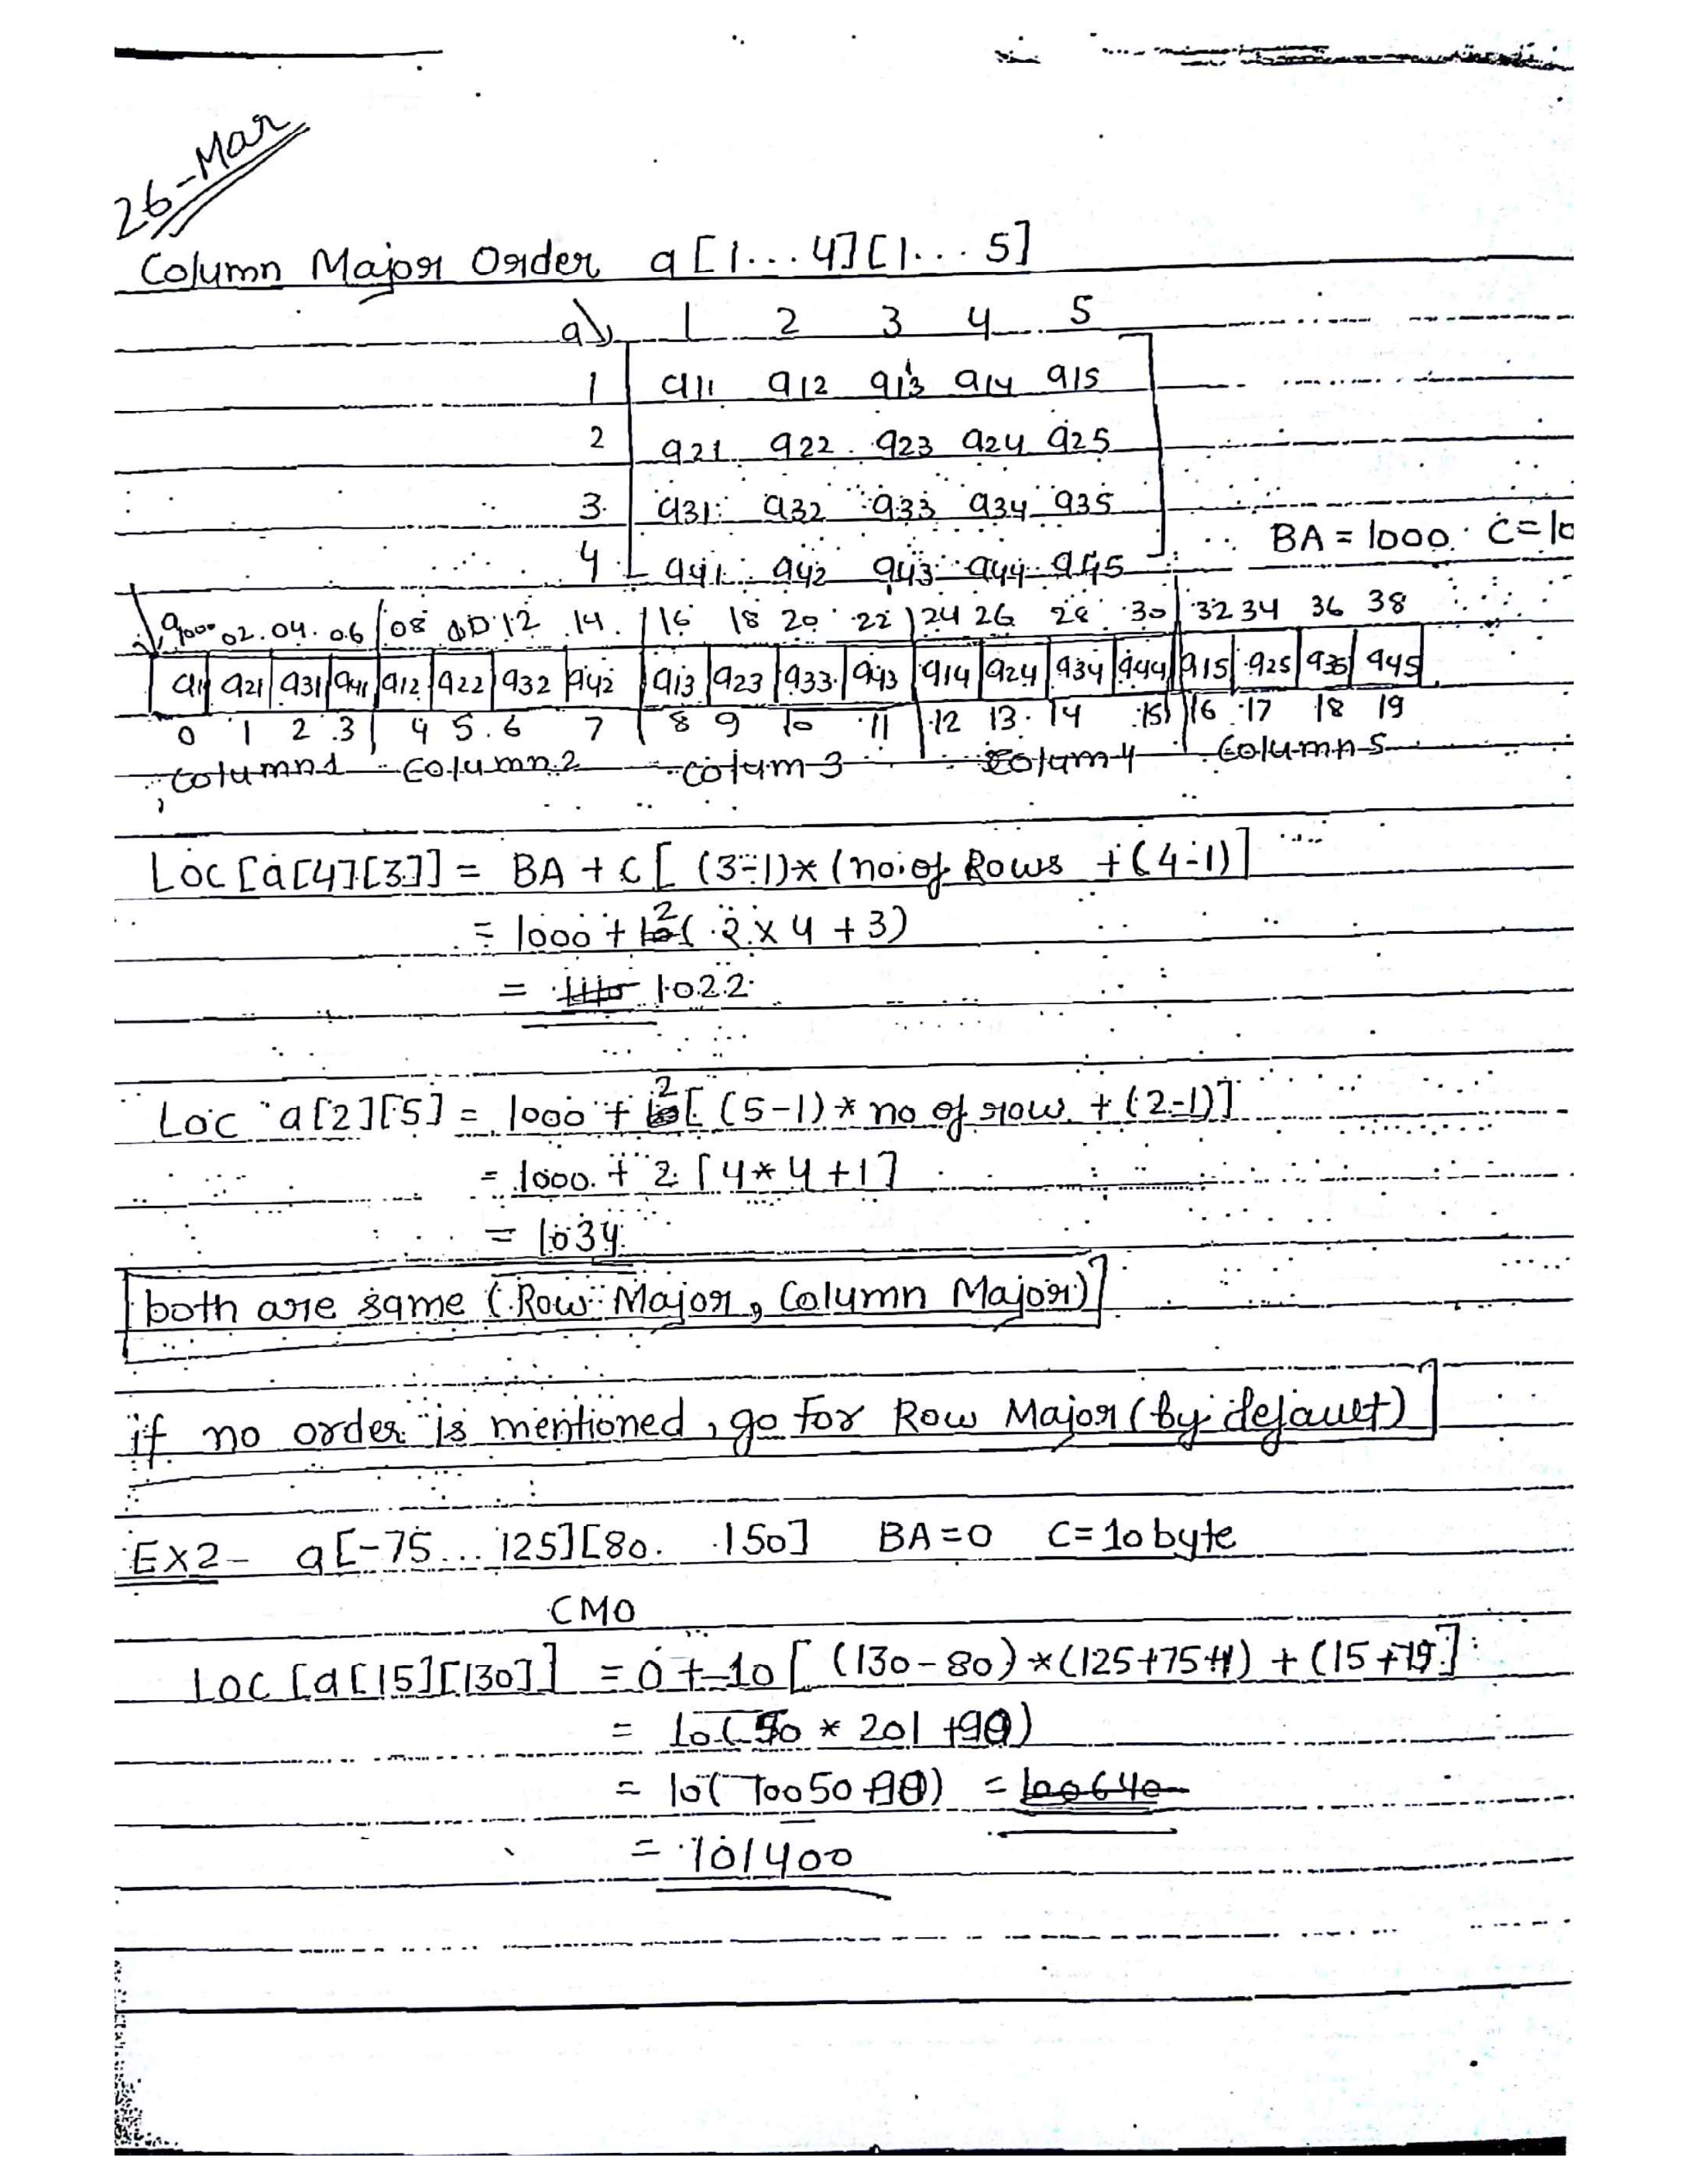 26-Mar
Column Major Order a[1...4][1...5]
a 1 2 3 4 5
1 a11 a12 a13 a14 a15
2 a21 a22 a23 a24 a25
3 a31 a32 a33 a34 a35
BA = 1000 C=10
4 a41 a42 a43 a44 a45
1000 02 04 06 08 10 12 14 16 18 20 22 24 26 28 30 32 34 36 38
a11 a21 a31 a41 a12 a22 a32 a42 a13 a23 a33 a43 a14 a24 a34 a44 a15 a25 a35 a45
0 1 2 3 4 5 6 7 8 9 10 11 12 13 14 15 16 17 18 19
column1 column2 colum3 colum4 column5
Loc [a[4][3]] = BA + C [ (3-1)* (no. of Rows + (4-1)]
= 1000 + 2( 2 x 4 + 3)
= 1022
Loc a[2][5] = 1000 + 2[ (5-1) * no of row + (2-1)]
= 1000 + 2 [4*4+1]
= 1034
both are same (Row Major, Column Major)
if no order is mentioned, go for Row Major (by default)
EX2- a[-75... 125][80. .150] BA=0 C=10 byte
CMO
Loc [a[15][130]] = 0 + 10 [ (130-80) *(125+75+1) + (15+75]
= 10(50 * 201 +90)
= 10( 10050 +90) = 100640
= 101400